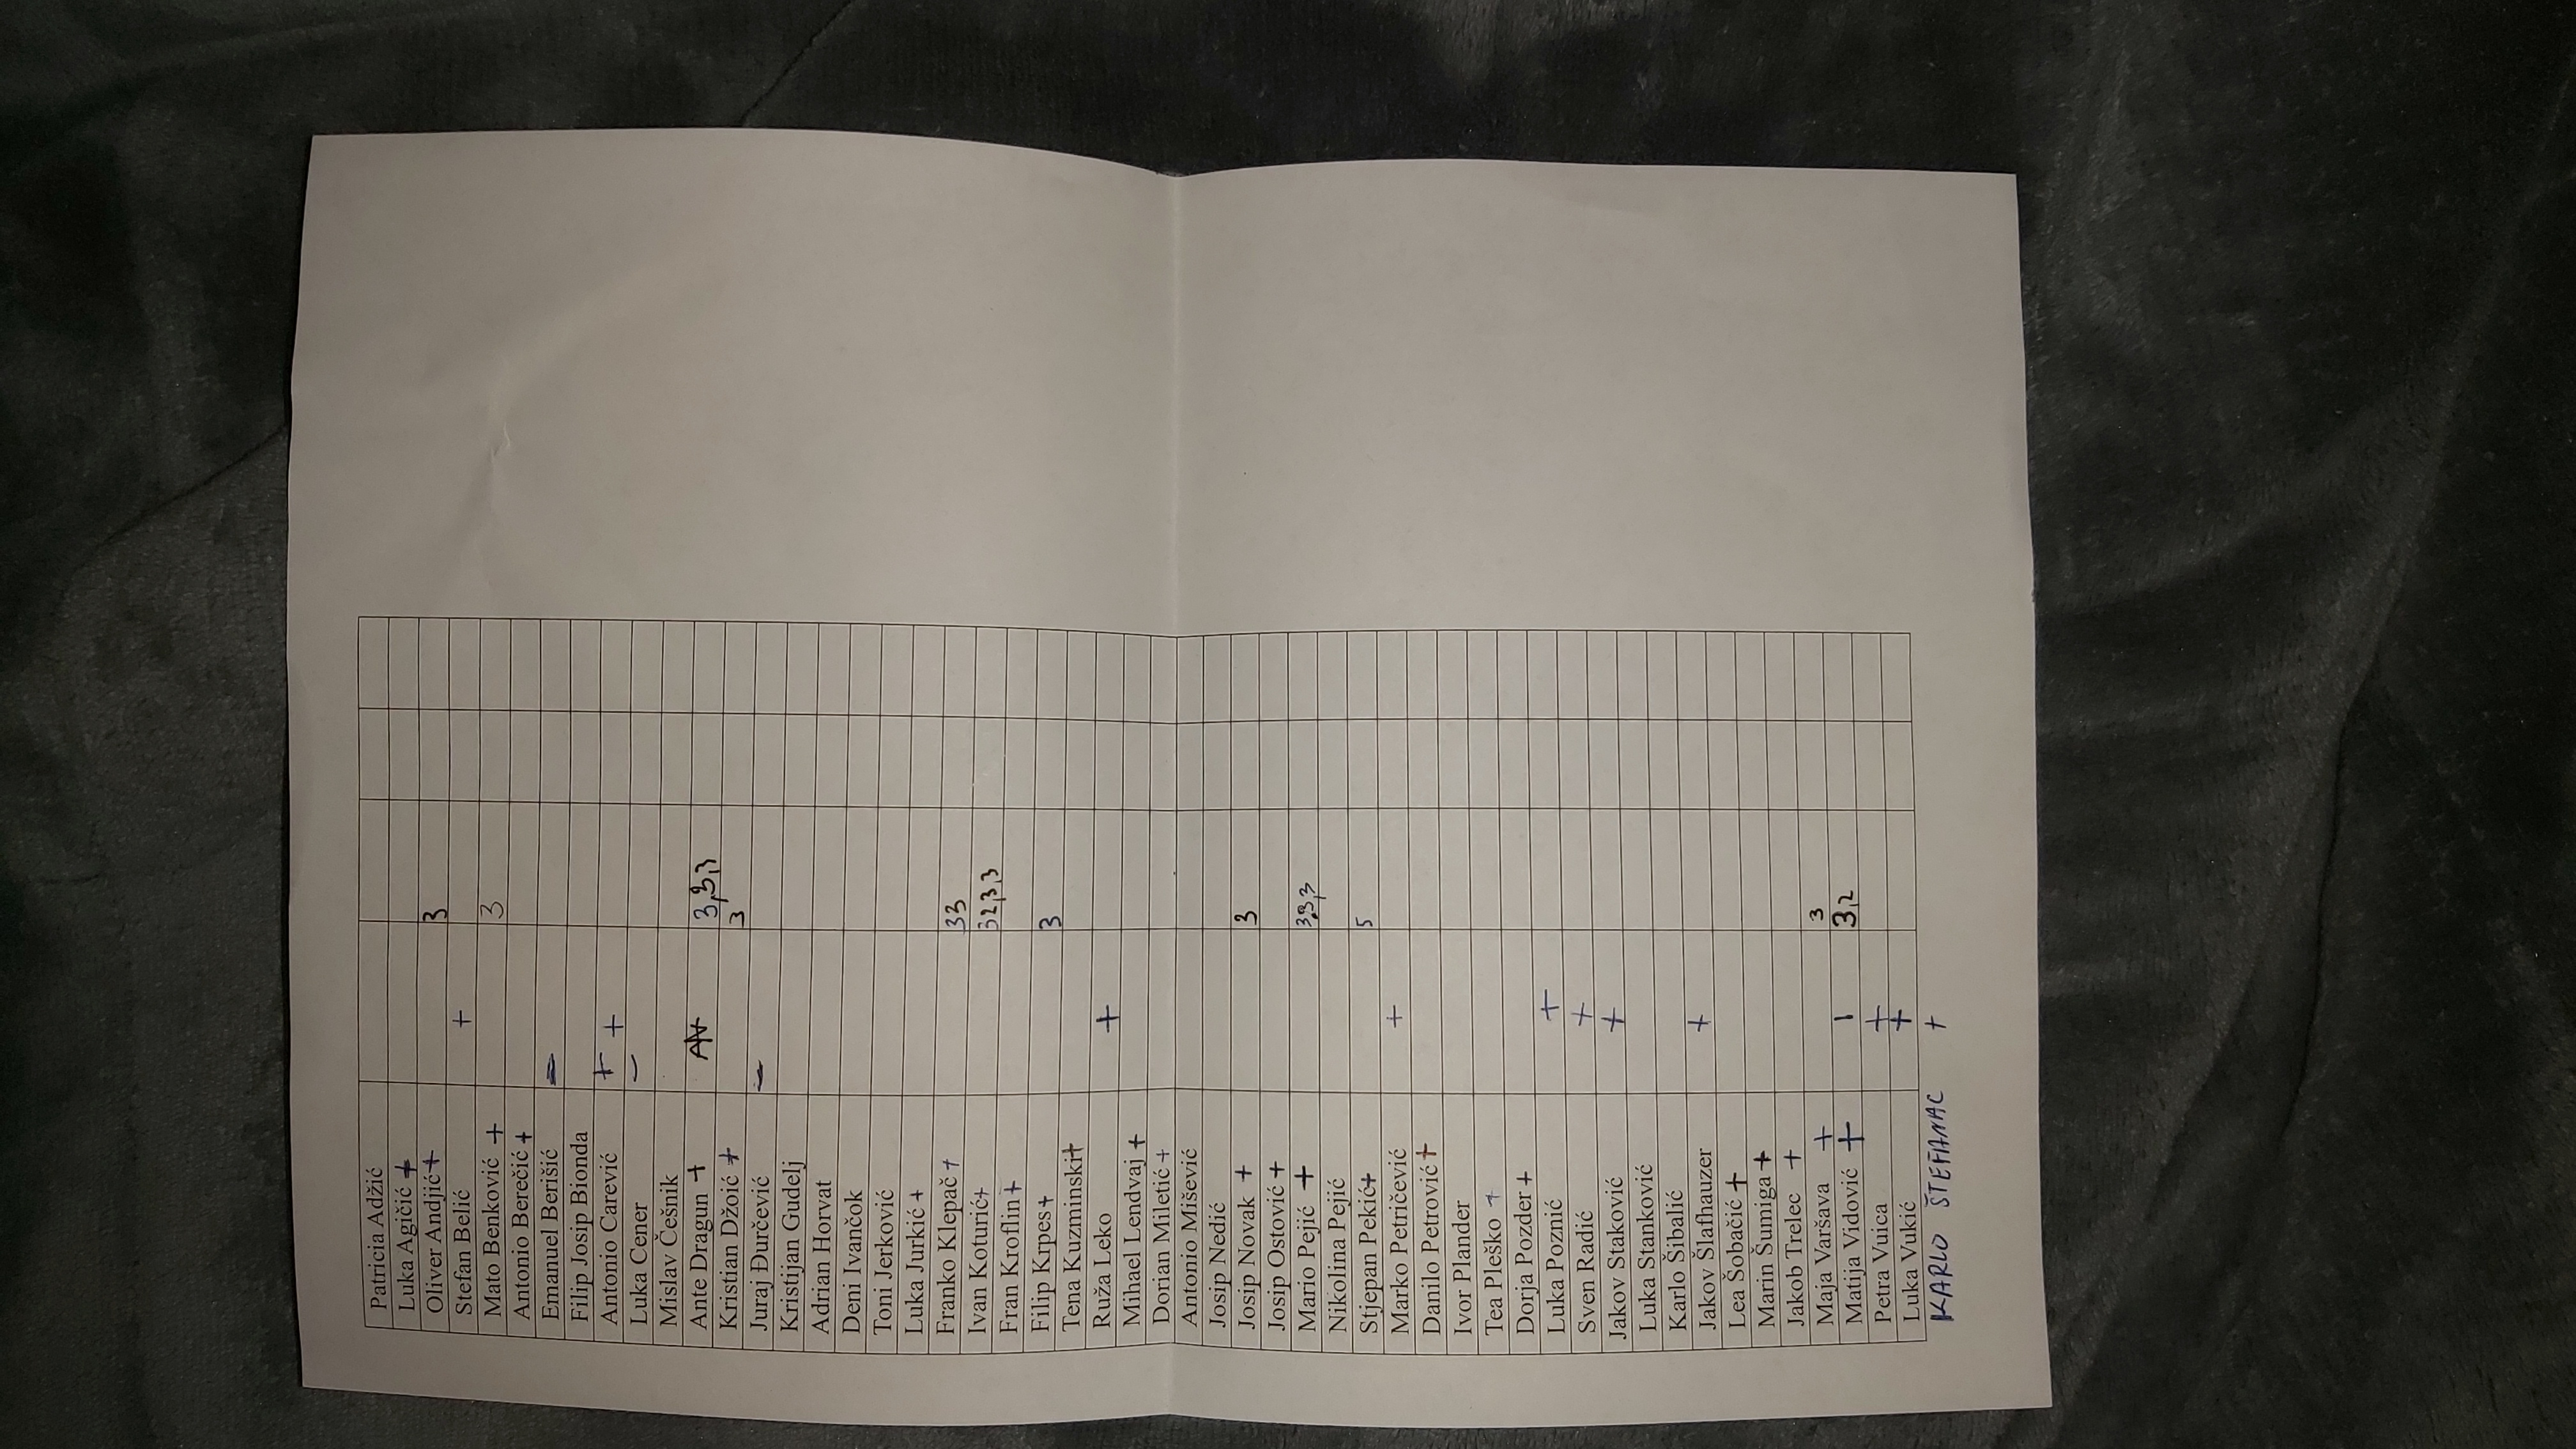 Patricia Adžić
Luka Agičić +
Oliver Andjić + 3
Stefan Belić +
Mato Benković + 3
Antonio Berečić +
Emanuel Berišić –
Filip Josip Bionda
Antonio Carević + +
Luka Cener –
Mislav Češnik
Ante Dragun + 3,3,3
Kristian Džoić + 3
Juraj Đurčević –
Kristijan Gudelj
Adrian Horvat
Deni Ivančok
Toni Jerković
Luka Jurkić +
Franko Klepač + 33
Ivan Koturić + 32,3,3
Fran Kroflin +
Filip Krpes + 3
Tena Kuzminski +
Ruža Leko +
Mihael Lendvaj +
Dorian Miletić +
Antonio Mišević
Josip Nedić
Josip Novak + 3
Josip Ostović +
Mario Pejić + 3,3,3
Nikolina Pejić
Stjepan Pekić + 5
Marko Petričević +
Danilo Petrović +
Ivor Plander
Tea Pleško +
Dorja Pozder +
Luka Poznić +
Sven Radić +
Jakov Staković +
Luka Stanković
Karlo Šibalić
Jakov Šlafhauzer +
Lea Šobačić +
Marin Šumiga +
Jakob Trelec +
Maja Varšava + 3
Matija Vidović + | 3,2
Petra Vuica +
Luka Vukić +
KARLO ŠTEFANAC +